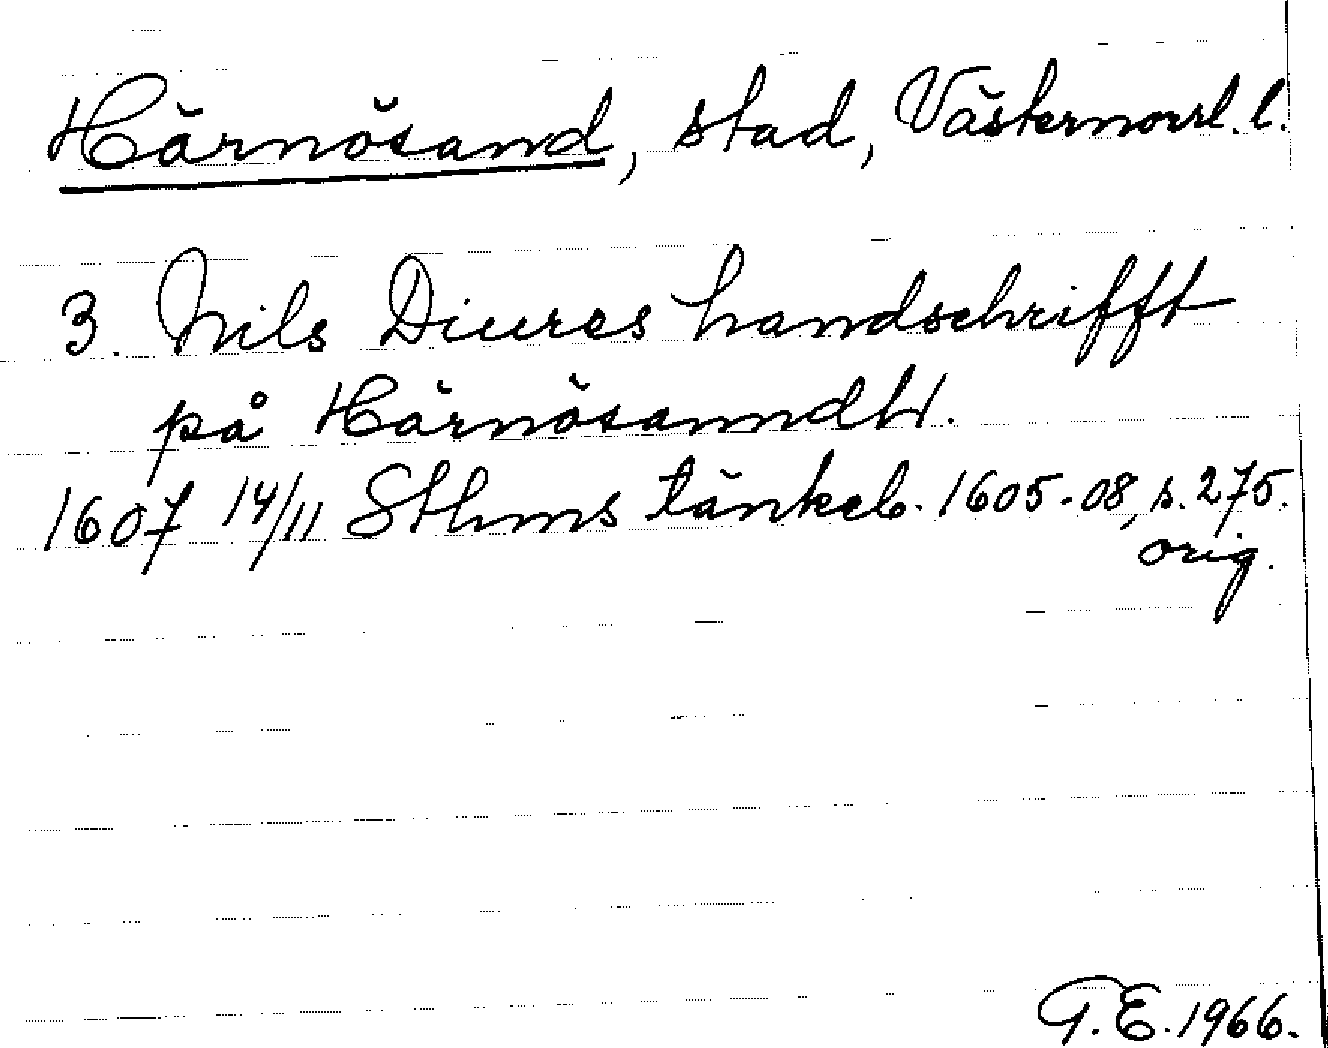 Härnösand, stad, Västernorrl. l.
3. Nils Diures handschrifft
på Härnösanndh.
1607 14/11 Sthms tänkeb. 1605-08, s. 275.
orig.
G.E. 1966.